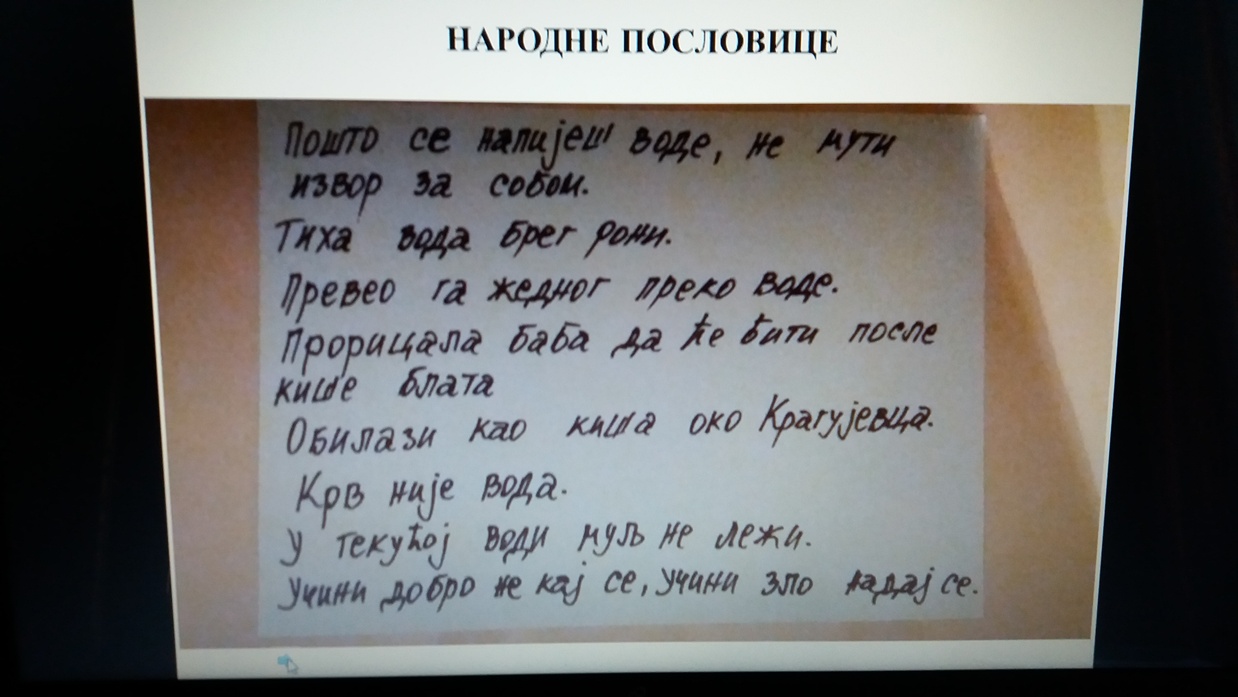 НАРОДНЕ ПОСЛОВИЦЕ
Пошто се напијеш воде, не мути
извор за собом.
Тиха вода брег рони.
Превео га жедног преко воде.
Прорицала баба да ће бити после
кише блата
Обилази као киша око Крагујевца.
Крв није вода.
У текућој води муљ не лежи.
Учини добро не кај се, учини зло надај се.